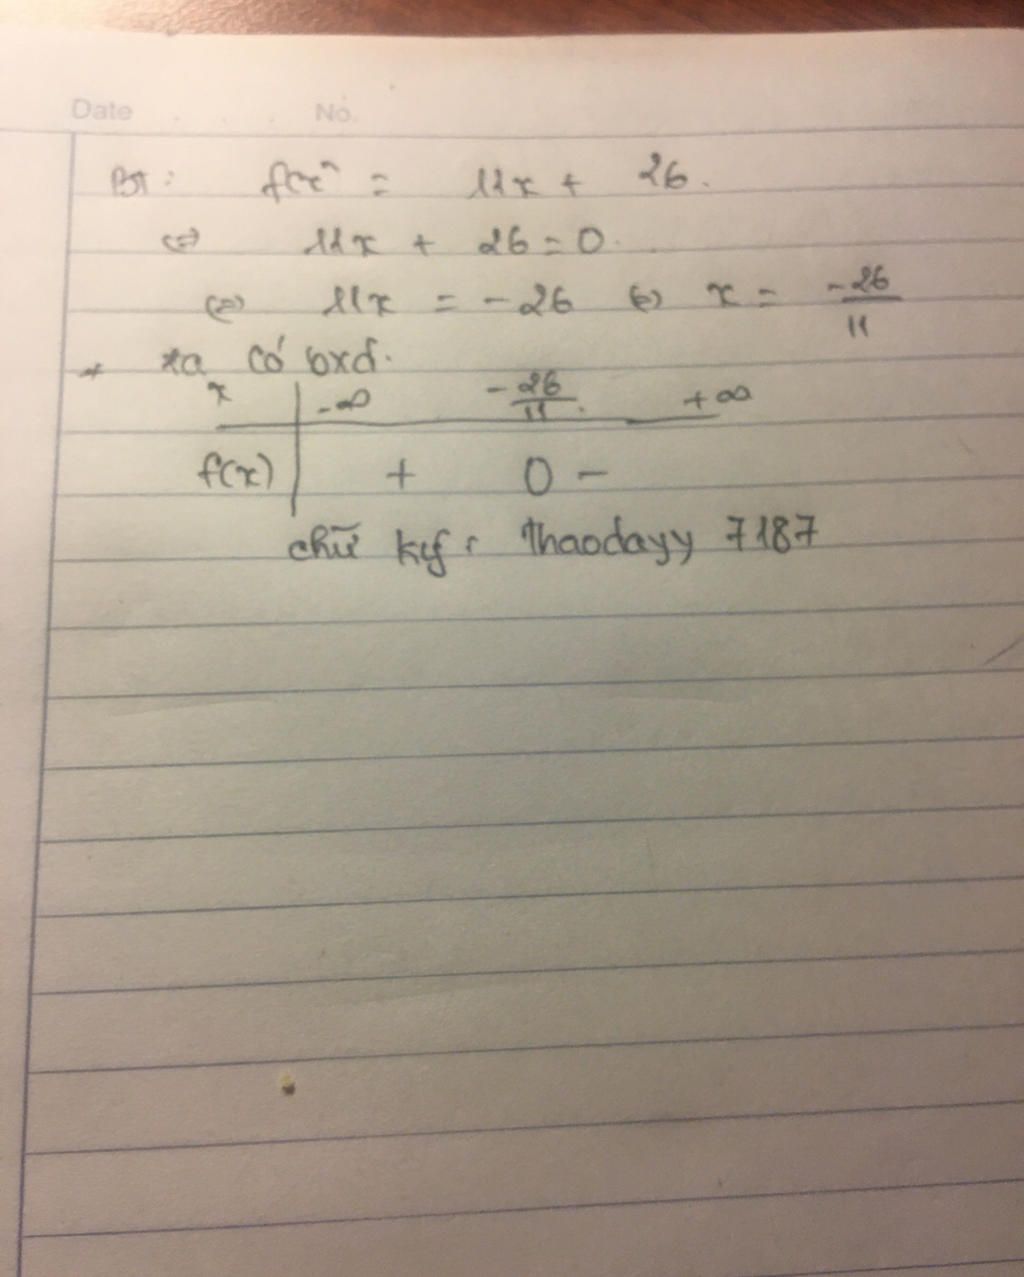 Date No.
BT: f(x) = 11x + 26.
<=> 11x + 26 = 0.
<=> 11x = -26 <=> x = -26/11
* ta có bxd.
x | -∞ -26/11 +∞
f(x) | + 0 -
chữ ký: thaodayy 7187